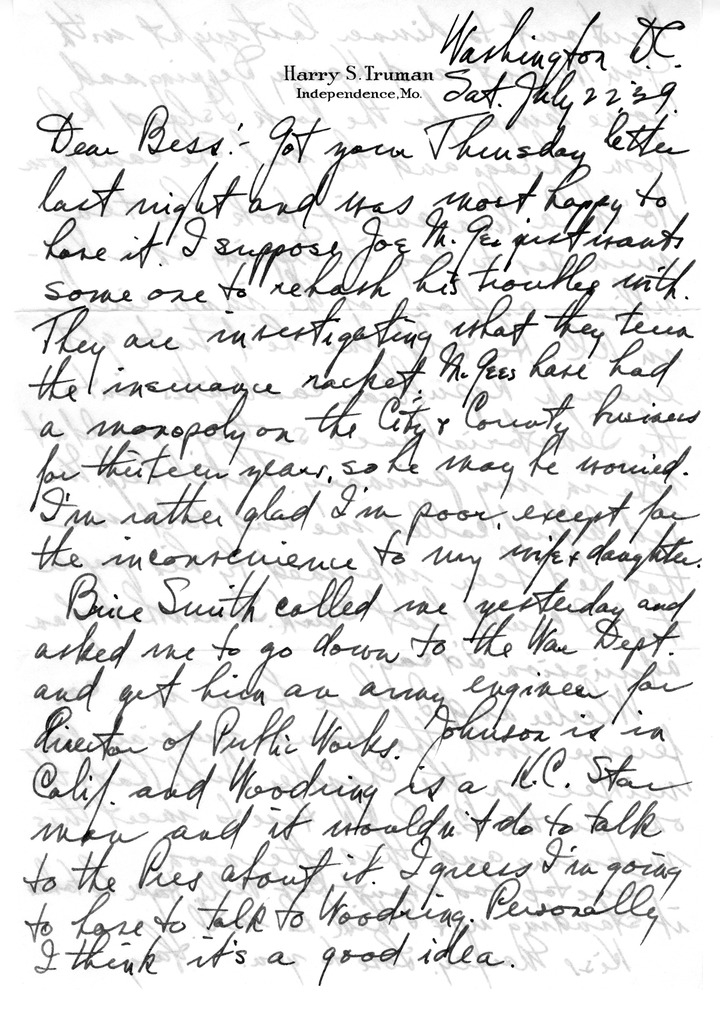 Washington D.C.
Harry S. Truman
Independence, Mo.
Sat. July 22, '39.
Dear Bess:- Got your Thursday letter
last night and was most happy to
have it. I suppose Joe McGee just wants
some one to rehash his troubles with.
They are investigating what they term
the insurance racket. McGees have had
a monopoly on the City & County business
for thirteen years, so he may be worried.
I'm rather glad I'm poor, except for
the inconvenience to my wife & daughter.
Bruce Smith called me yesterday and
asked me to go down to the War Dept.
and get him an army engineer for
director of Public Works. Johnson is in
Calif. and Woodring is a K.C. Star
man and it wouldn't do to talk
to the Pres about it. I guess I'm going
to have to talk to Woodring. Personally
I think it's a good idea.